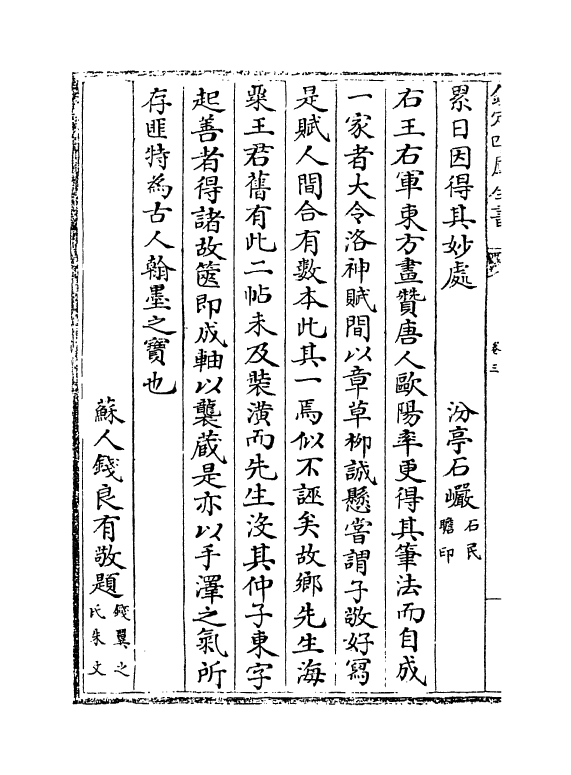 欽定四庫全書
卷三
累日因得其妙處　汾亭石巖石民瞻印
右王右軍東方畫贊唐人歐陽率更得其筆法而自成
一家者大令洛神賦間以章草柳誠懸嘗謂子敬好寫
是賦人間合有數本此其一焉似不誣矣故鄉先生海
粟王君舊有此二帖未及裝潢而先生沒其仲子東字
起善者得諸故篋即成軸以襲蔵是亦以手澤之氣所
存匪特為古人翰墨之寶也
蘇人錢良有敬題錢翼之氏朱文